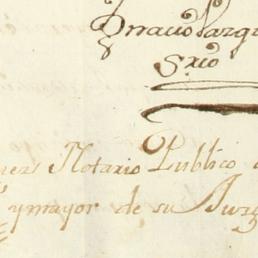 Ygnacio Varg
Srio
nez Notario Publico
y mayor de su Juzg